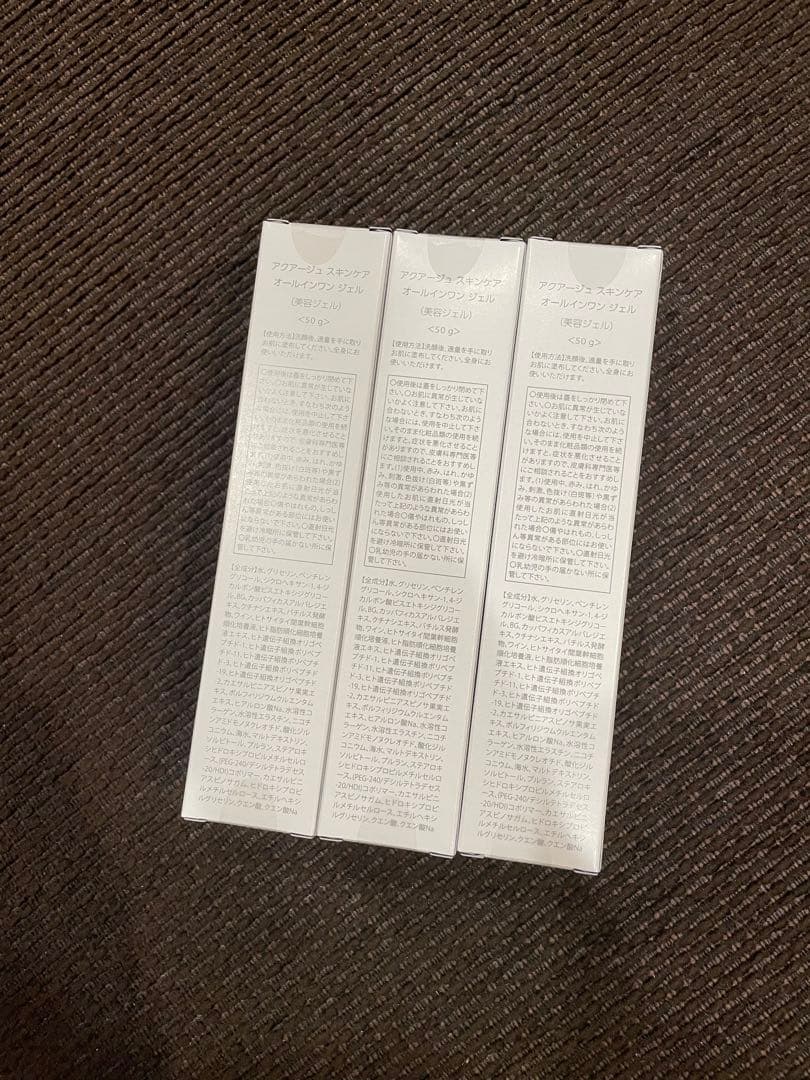 アクアージュ スキンケア
オールインワン ジェル
(美容ジェル)
<50g>
【使用方法】洗顔後、適量を手に取り
お肌に塗布してください。全身にお
使いいただけます。
〇使用後は蓋をしっかり閉めて下
さい。〇お肌に異常が生じていな
いかよく注意して下さい。お肌に
合わないとき、すなわち次のよう
な場合には、使用を中止して下さ
い。そのまま化粧品類の使用を続
けますと、症状を悪化させること
がありますので、皮膚科専門医等
にご相談されることをおすすめし
ます。(1)使用中、赤み、はれ、かゆ
み、刺激、色抜け(白斑等)や黒ず
み等の異常があらわれた場合(2)
使用したお肌に直射日光が当
たって上記のような異常があらわ
れた場合〇傷やはれもの、しっし
ん等異常がある部位にはお使い
にならないで下さい。〇直射日光
を避け冷暗所に保管して下さい。
〇乳幼児の手の届かない所に保
管して下さい。
【全成分】水、グリセリン、ペンチレン
グリコール、シクロヘキサン-1,4-ジ
カルボン酸ビスエトキシジグリコー
ル、BG、カッパフィカスアルバレジエ
キス、クチナシエキス、バチルス発酵
物、ワイン、ヒトサイタイ間葉幹細胞
順化培養液、ヒト脂肪順化細胞培養
液エキス、ヒト遺伝子組換オリゴペ
プチド-1、ヒト遺伝子組換ポリペプ
チド-11、ヒト遺伝子組換ポリペプチ
ド-3、ヒト遺伝子組換ポリペプチド
-19、ヒト遺伝子組換オリゴペプチド
-2、カエサルピニアスピノサ果実エ
キス、ポルフィリジウムクルエンタム
エキス、ヒアルロン酸Na、水溶性コ
ラーゲン、水溶性エラスチン、ニコチ
ンアミドモノヌクレオチド、酸化ジル
コニウム、海水、マルトデキストリン、
ソルビトール、プルラン、ステアロキ
シヒドロキシプロピルメチルセルロ
ース、(PEG-240/デシルテトラデセス
-20/HDI)コポリマー、カエサルピニ
アスピノサガム、ヒドロキシプロピ
ルメチルセルロース、エチルヘキシ
ルグリセリン、クエン酸、クエン酸Na
アクアージュ スキンケア
オールインワン ジェル
(美容ジェル)
<50g>
【使用方法】洗顔後、適量を手に取り
お肌に塗布してください。全身にお
使いいただけます。
〇使用後は蓋をしっかり閉めて下
さい。〇お肌に異常が生じていな
いかよく注意して下さい。お肌に
合わないとき、すなわち次のよう
な場合には、使用を中止して下さ
い。そのまま化粧品類の使用を続
けますと、症状を悪化させること
がありますので、皮膚科専門医等
にご相談されることをおすすめし
ます。(1)使用中、赤み、はれ、かゆ
み、刺激、色抜け(白斑等)や黒ず
み等の異常があらわれた場合(2)
使用したお肌に直射日光が当
たって上記のような異常があらわ
れた場合〇傷やはれもの、しっし
ん等異常がある部位にはお使い
にならないで下さい。〇直射日光
を避け冷暗所に保管して下さい。
〇乳幼児の手の届かない所に保
管して下さい。
【全成分】水、グリセリン、ペンチレン
グリコール、シクロヘキサン-1,4-ジ
カルボン酸ビスエトキシジグリコー
ル、BG、カッパフィカスアルバレジエ
キス、クチナシエキス、バチルス発酵
物、ワイン、ヒトサイタイ間葉幹細胞
順化培養液、ヒト脂肪順化細胞培養
液エキス、ヒト遺伝子組換オリゴペ
プチド-1、ヒト遺伝子組換ポリペプ
チド-11、ヒト遺伝子組換ポリペプチ
ド-3、ヒト遺伝子組換ポリペプチド
-19、ヒト遺伝子組換オリゴペプチド
-2、カエサルピニアスピノサ果実エ
キス、ポルフィリジウムクルエンタム
エキス、ヒアルロン酸Na、水溶性コ
ラーゲン、水溶性エラスチン、ニコチ
ンアミドモノヌクレオチド、酸化ジル
コニウム、海水、マルトデキストリン、
ソルビトール、プルラン、ステアロキ
シヒドロキシプロピルメチルセルロ
ース、(PEG-240/デシルテトラデセス
-20/HDI)コポリマー、カエサルピニ
アスピノサガム、ヒドロキシプロピ
ルメチルセルロース、エチルヘキシ
ルグリセリン、クエン酸、クエン酸Na
アクアージュ スキンケア
オールインワン ジェル
(美容ジェル)
<50g>
【使用方法】洗顔後、適量を手に取り
お肌に塗布してください。全身にお
使いいただけます。
〇使用後は蓋をしっかり閉めて下
さい。〇お肌に異常が生じていな
いかよく注意して下さい。お肌に
合わないとき、すなわち次のよう
な場合には、使用を中止して下さ
い。そのまま化粧品類の使用を続
けますと、症状を悪化させること
がありますので、皮膚科専門医等
にご相談されることをおすすめし
ます。(1)使用中、赤み、はれ、かゆ
み、刺激、色抜け(白斑等)や黒ず
み等の異常があらわれた場合(2)
使用したお肌に直射日光が当
たって上記のような異常があらわ
れた場合〇傷やはれもの、しっし
ん等異常がある部位にはお使い
にならないで下さい。〇直射日光
を避け冷暗所に保管して下さい。
〇乳幼児の手の届かない所に保
管して下さい。
【全成分】水、グリセリン、ペンチレン
グリコール、シクロヘキサン-1,4-ジ
カルボン酸ビスエトキシジグリコー
ル、BG、カッパフィカスアルバレジエ
キス、クチナシエキス、バチルス発酵
物、ワイン、ヒトサイタイ間葉幹細胞
順化培養液、ヒト脂肪順化細胞培養
液エキス、ヒト遺伝子組換オリゴペ
プチド-1、ヒト遺伝子組換ポリペプ
チド-11、ヒト遺伝子組換ポリペプチ
ド-3、ヒト遺伝子組換ポリペプチド
-19、ヒト遺伝子組換オリゴペプチド
-2、カエサルピニアスピノサ果実エ
キス、ポルフィリジウムクルエンタム
エキス、ヒアルロン酸Na、水溶性コ
ラーゲン、水溶性エラスチン、ニコチ
ンアミドモノヌクレオチド、酸化ジル
コニウム、海水、マルトデキストリン、
ソルビトール、プルラン、ステアロキ
シヒドロキシプロピルメチルセルロ
ース、(PEG-240/デシルテトラデセス
-20/HDI)コポリマー、カエサルピニ
アスピノサガム、ヒドロキシプロピ
ルメチルセルロース、エチルヘキシ
ルグリセリン、クエン酸、クエン酸Na